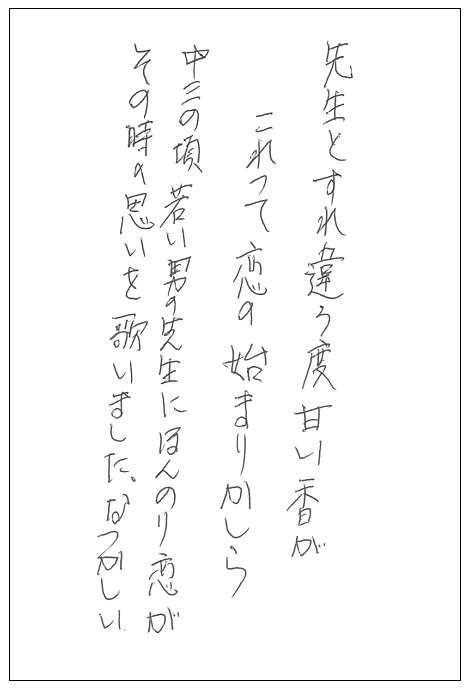 先生とすれ違う度甘い香が
これって恋の始まりかしら
中三の頃若い男の先生にほんのり恋が
その時の思いを歌いました、なつかしい